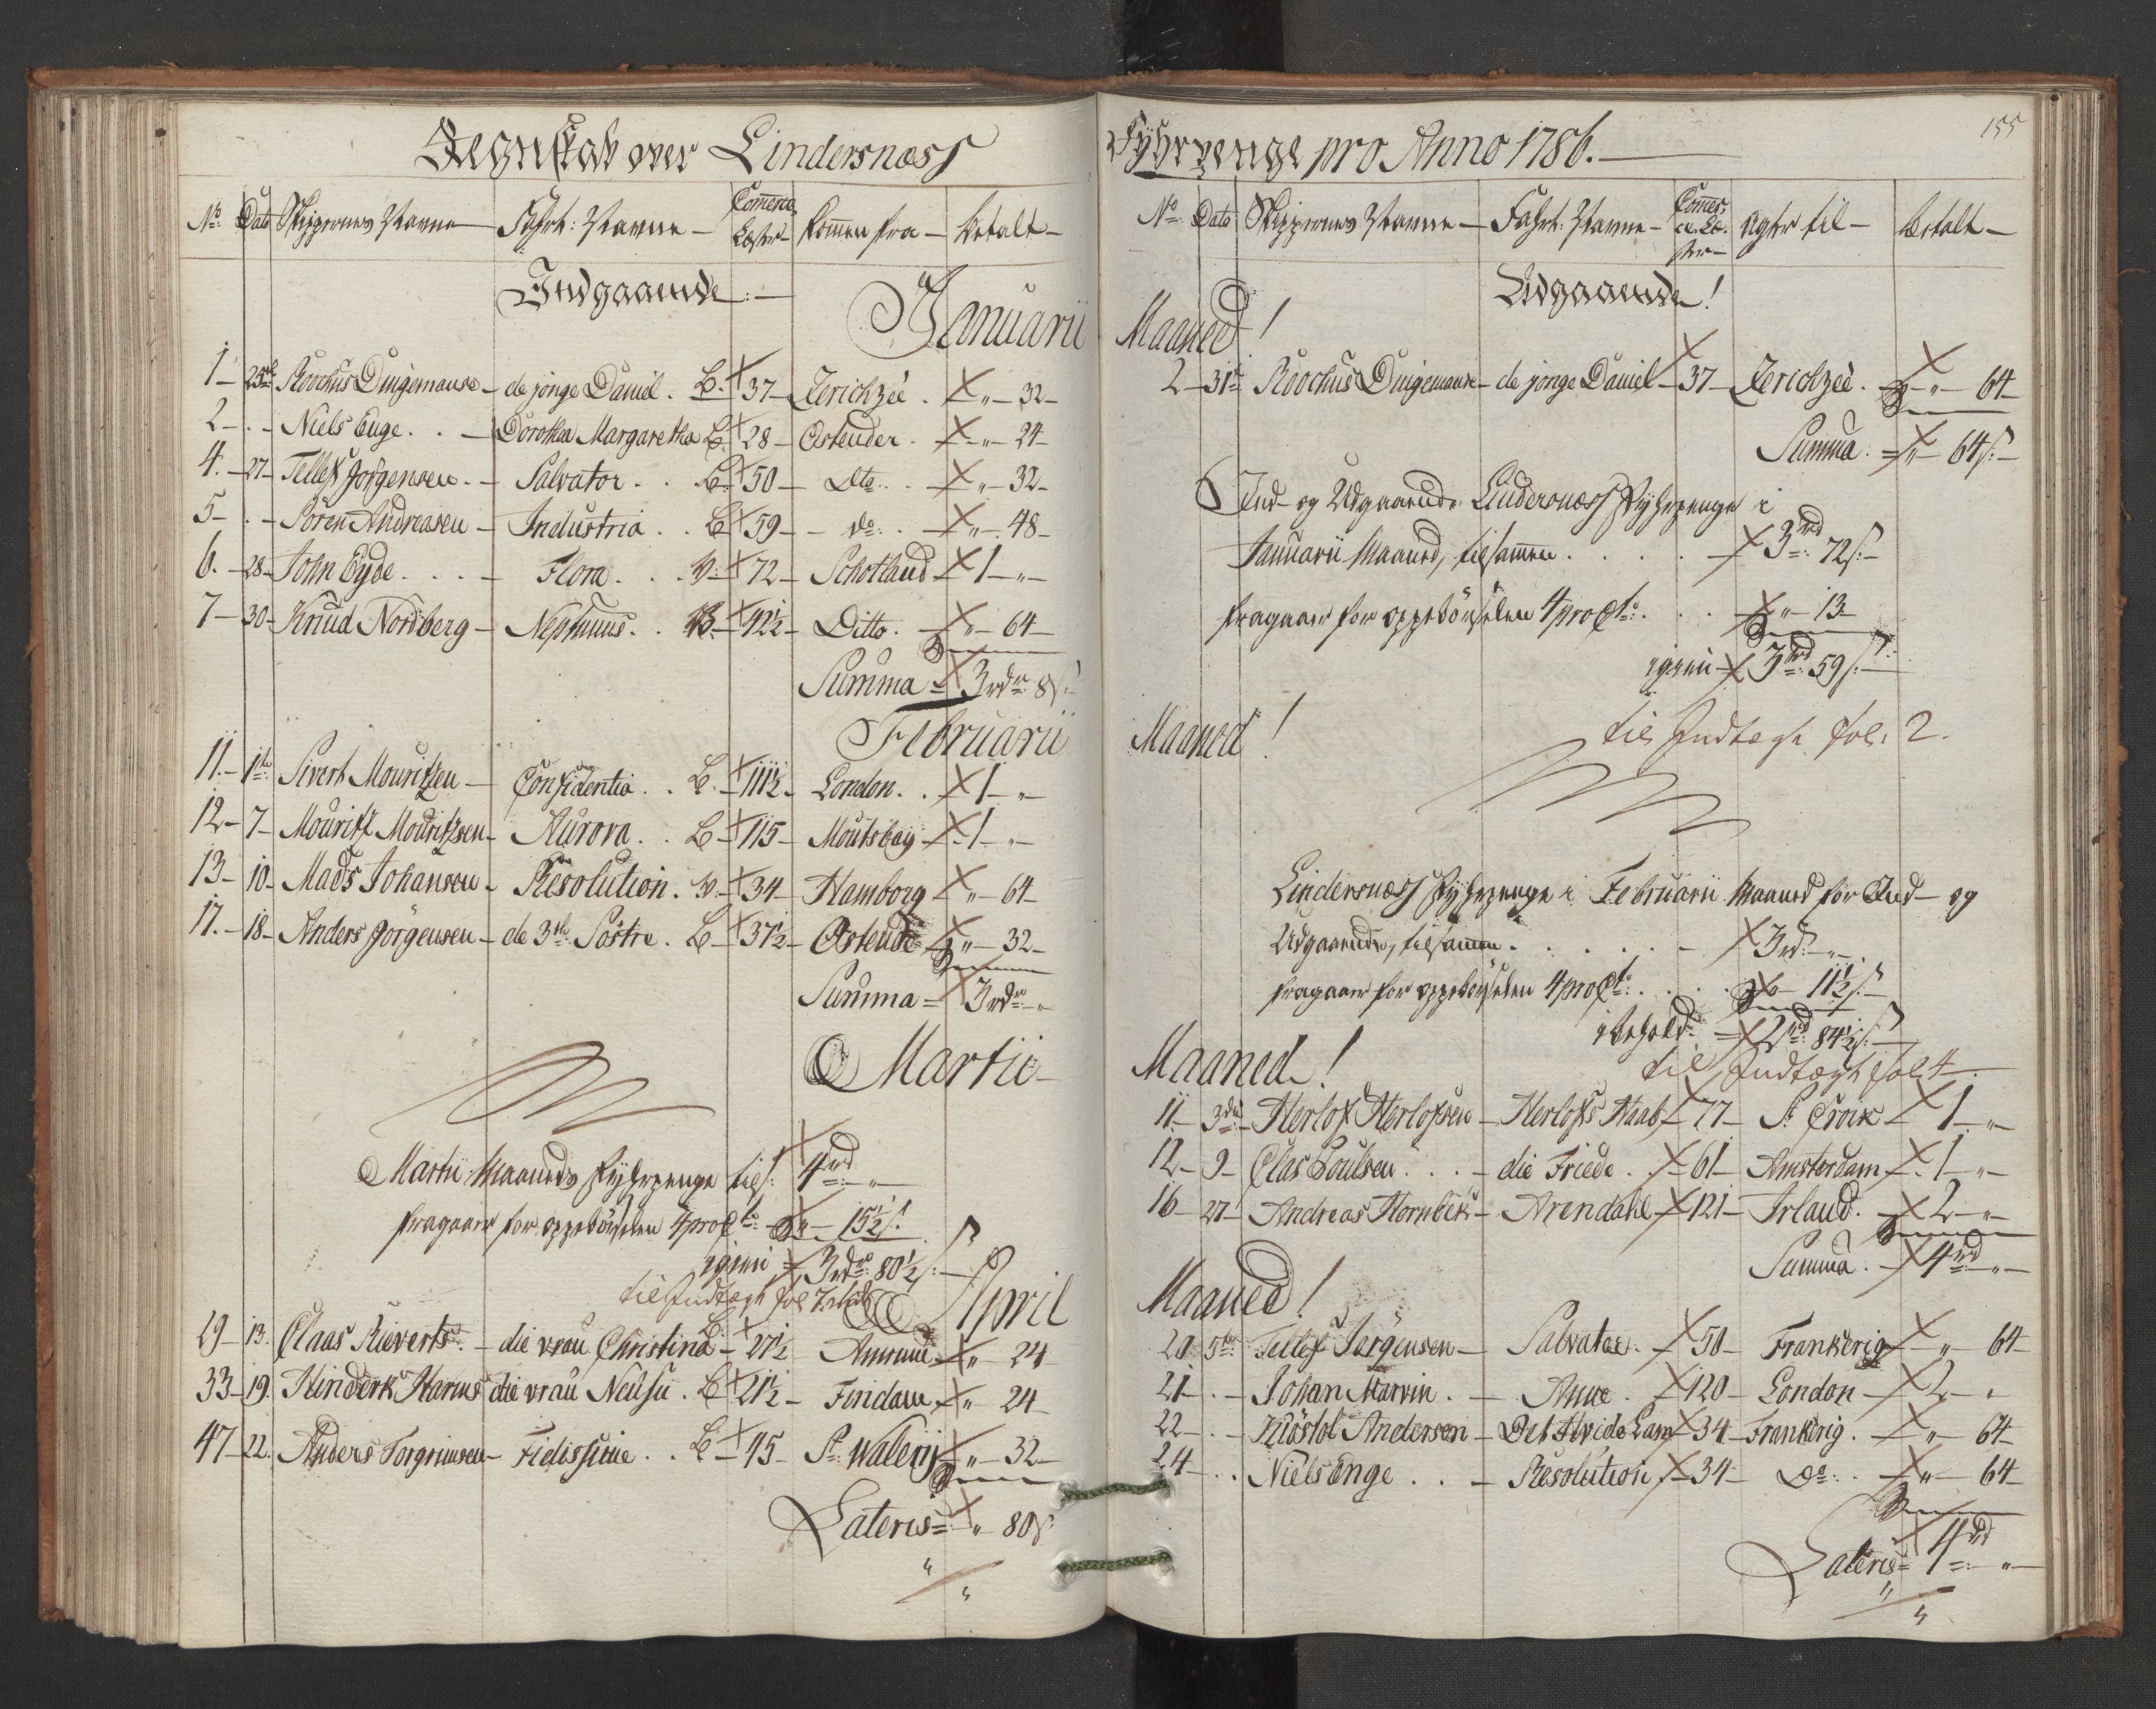 Regnskab over Lindersnæss
No: Dato Skippernes Navne Fahrt: Navne Commerce Læster kommen fra betalt
Indgaaende:
Januarii
1 25de Roochus Duigemause de jonge Daniel. B. 37 Zerichzeè. " 32
2 Niels Enge Dorothea Margaretha B. 28 Ostender. " 24
4. 27 Tellef Jörgensen Salvator B. 50 Dto " 32
5 Sören Andreasen Industria B. 59 do: " 48
6. 28 John Eyde Flora 72 Schotland 1 "
7 30 Knud Nordberg Neptunus 42½ Ditto. " 64
Summa = 3rdr: 8s:
Februarii
11. 1te: Sivert Mouritzen Confidentia B. 111½ London. 1 "
12 7 Mouritz Mouritzsen Aurora B 115 Moutsbay 1 "
13 10 Mads Johansen Resolution. 34 Hamborg " 64
17. 18 Anders Jörgensen de 3de Söstre. B 37½ Ostende " 32
Summa = 3rdr: "
Martii
Martii Maaneds fyhrpenge tils: 4rd: "
fragaaer for oppebörselen 4 proCto: " 15½ s.
igien 3rdr: 80½ s:
til Indtægt fol
April
29 13. Claas Rieverts die vrau Christina B. 27½ " 24
33 19. Hinderk Harms die vrau B 21½ " 24
47 22. Anders Torgrimsen Fidissime B 45 St: Walerij " 32
Lateris = " 80s.
155
Fyhrpenge pro Anno 1786.
No: Dato Skippernes Navne Fahrt: Navne Commerce Læster Agter til betalt
Udgaaende!
Maaned!
2 31te Roochus Duigemause de jonge Daniel 37 Zerichzeè. " 64
Summa. = " 64s.
Ind- og Udgaaende Lindersnæss Fyhrpenge i
Januarii Maaned, tilsammen 3rd: 72s:
fragaaer for oppebörselen 4 proCto: " 13
igien 3rd: 59s:
Maaned!
til Indtægt fol: 2.
Lindersnæss Fyhrpenge i Februarii Maaned for Ind- og
Udgaaende, tilsammen 3rd: "
fragaaer for oppebörselen 4 proCto: 11½ s:
i behold = 2rd: 84½ s:
til Indtægt fol 4
Maaned!
11. 3die Herlof Herlofsen Herlofs Haab 77 St: Croix 1 "
12 9 Clas Poulsen die Friede 61 Amsterdam 1 "
16 27 Andreas Hornbek Arendahl 121 Irland. 2 "
Summa. 4rd "
Maaned!
20 5te Tellef Jörgensen Salvator. 50 Frankerig " 64
21 Johan Marvin Anne 120 London 2 "
22 Kiöstol Andersen Det Hvide Lam 34 Frankerig. " 64
24 Niels Enge Resolution 34 Do: " 64
Lateris = 4rd: "